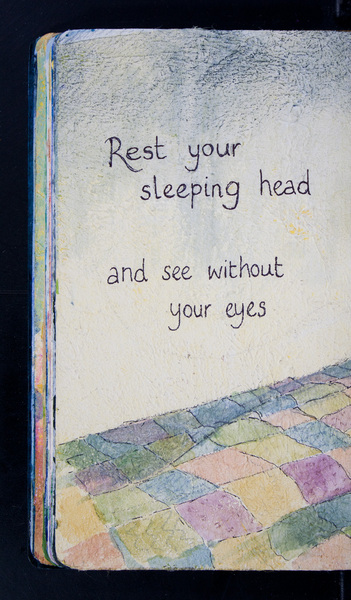 Rest your
sleeping head
and see without
your eyes